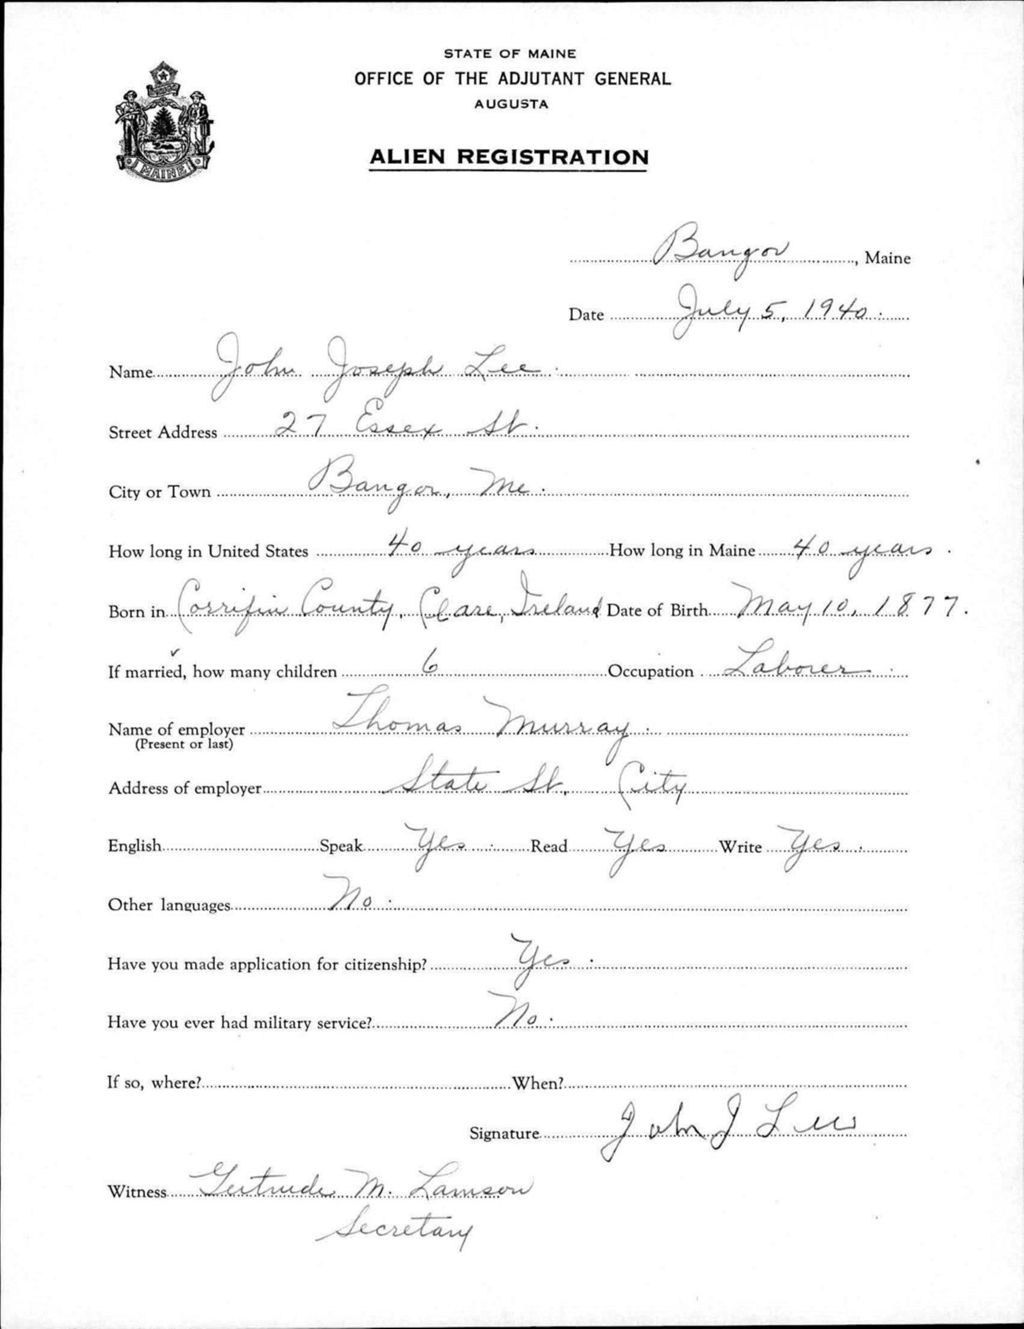 STATE OF MAINE
OFFICE OF THE ADJUTANT GENERAL
AUGUSTA
ALIEN REGISTRATION
MAINE
Bangor, Maine
Date July 5, 1940.
Name John Joseph Lee.
Street Address 27 Essex St.
City or Town Bangor, Me.
How long in United States 40 years How long in Maine 40 years.
Born in Corrifin County, Clare, Ireland Date of Birth May 10, 1877.
If married, how many children 6 Occupation Laborer.
Name of employer Thomas Murray.
(Present or last)
Address of employer State St, City
English Speak Yes. Read Yes Write Yes.
Other languages No.
Have you made application for citizenship? Yes.
Have you ever had military service? No.
If so, where? When?
Signature John J Lee
Witness Gertrude M. Lamson
Secretary